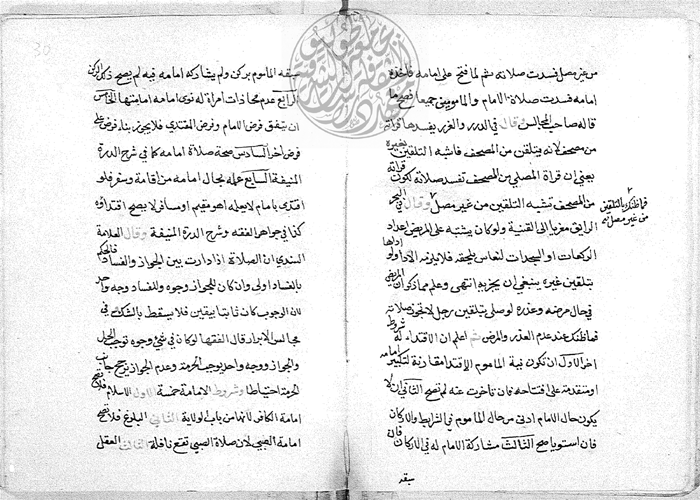 من غير مصل فسدت صلاته ثم لما فتح على امامه فاخذه
امامه فسدت صلاة الامام والمأمومين جميعا فصح ما
قاله صاحب المجالس وقال في الدرر والغرر يفسدها قرائه
من مصحف لانه يتلقن من المصحف فاشبه التلقين من غيره
يعني ان قراة المصلي من المصحف تفسد صلاته لكون قراته
من المصحف تشبه التلقين من غير مصل وقال في البحر
فما ظنك بالتلقين
من غير مصل
الرايق معزيا الى القنية ولو كان يشتبه على المريض اعداد
الركعات او السجدات لنعاس يلحقه فلا يلزمه الاداء ولو اداها
بتلقين غيره ينبغي ان يجزيه انتهى وعلم مما ذكر ان المريض
في حال مرضه وعذره لو صلى بتلقين رجل لا تجوز صلاته
فما ظنك عند عدم العذر والمرض ثم اعلم ان الاقتداء له شروط
اخر الاول ان تكون نية المأموم الاقتداء مقارنة لتكبير امامه
او متقدمة على افتتاحه فان تأخرت عنه لم تصح الثاني ان لا
يكون حال الامام ادنى من حال المأموم في الشرايط والاركان
فان استويا صح الثالث مشاركة الامام له في الاركان فان
سبقه
30
سبقه المأموم بركن ولم يشاركه امامه فيه لم يصح ذلك الركن
الرابع عدم محاذات امرأة له نوى امامه امامتها الخامس
ان يتفق فرض الامام وفرض المقتدي فلا يجوز بناء فرض على
فرض اخر السادس صحة صلاة امامه كما في شرح الدرة
المنيفة السابع علمه بحال امامه من اقامة وسفر فلو
اقتدى بامام لا يعلم اهو مقيم او مسافر لا يصح اقتداؤه
كذا في جواهر الفقه وشرح الدرة المنيفة وقال العلامة
السندي ان الصلاة اذا دارت بين الجواز والفساد فالحكم
بالفساد اولى وان كان للجواز وجوه وللفساد وجه واحد
لان الوجوب كان ثابتا بيقين فلا يسقط بالشك في
مجالس الابرار قال الفقها لو كان في شيء وجوه توجب الحل
والجواز ووجه واحد يوجب الحرمة وعدم الجواز يرجح جانب
الحرمة احتياطا وشروط الامامة خمسة الاول الاسلام فلا تصح
امامة الكافر لانها من باب الولاية الثاني البلوغ فلا تصح
امامة الصبي لان صلاة الصبي تقع نافلة الثالث العقل